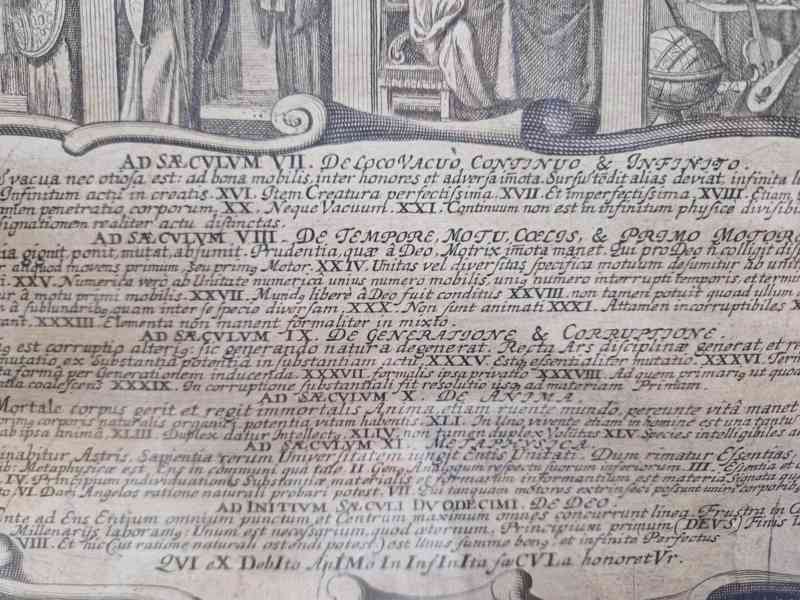 AD SÆCVLVM VII. DE LOCO VACUO, CONTINUO & INFINITO.
vacua nec otiosa est: ad bona mobilis, inter honores et adversa imota. Sursu tedit alias deviat, infinita
Infinitum actu in creatis. XVI. Item Creatura perfectissima. XVII. Et imperfectissima. XVIII. Etiam
penetratio corporum. XX. Neque Vacuum. XXI. Continuum non est in infinitum physice divisibi
signationem realiter actu distinctas.
AD SÆCVLVM VIII. DE TEMPORE, MOTU, CŒLIS, & PRIMO MOTORE
gignit, ponit, mutat, absumit. Prudentia, quæ à Deo, Motrix imota manet. Qui pro Deg n colligit
aliquod movens primum, seu primg Motor. XXIV. Unitas vel diversitas specifica motuum desumitur ab unit
XXV. Numerica verò ab Unitate numerica unius numero mobilis, unig numero interrupti temporis, et termi
à motu primi mobilis. XXVII. Mundg liberè à Deo fuit conditus XXVIII. non tamen potuit quoad ullum
à sublunaribg quam inter se specie diversam. XXX. Non sunt animati XXXI. Attamen incorruptibiles
XXXIII. Elementa non manent formaliter in mixto.
AD SÆCVLVM IX. DE GENERATIONE, & CORRUPTIONE.
est corruptio alterig: sic generando natura degenerat. Recta Ars disciplinæ generat, et re
mutatio ex Substantia potentia in substantiam actu. XXXV. Estg essentialiter mutatio. XXXVI. Term
forma per Generationem inducenda. XXXVII. formalis ipsa privatio XXXVIII. Ad quem primarig ut quod
coalescens XXXIX. In corruptione substantiali fit resolutio usq ad materiam Primam.
AD SÆCVLVM X. DE ANIMA.
Mortale corpus gerit et regit immortalis Anima, etiam ruente mundo, pereunte vitâ manet
corporis naturalis organici, potentia vitam habentis. XLI. In Uno vivente etiam in homine est una tantu
ab ipsa anima. XLIII. Duplex datur Intellectg. XLIV. non tamen duplex Volutas XLV. Species intelligibiles
AD SÆCVLVM XI.
inabitur Astris, Sapientia rerum Universitatem iungit Entis Unitati. Dum rimatur Essentias,
Metaphysicæ est, Ens in communi qua tale. II. Geng Analogum respectu suorum inferiorum. III. Essentia et
IV. Principium individuationis Substantiæ materialis et formarum informantium est materia signata
VI. Dari Angelos ratione naturali probari potest. VII. Qui tanquam motores extrinseci possunt uniri corporib
AD INITIVM SÆCULI DUODECIMI. DE DEO
ad Ens Entium omnium punctum et Centrum maximum omnes concurrunt linea. Frustra in
Millenarijs laboramg: Unum est necessarium, quod æternum, Principium primum (DEVS) Finis
VIII. Et hic (ut ratione naturali ostendi potest) est Unus summe bong, et infinitè Perfectus
QVI eX DebIto AnIMo In InfInIta sæCVLa honoretVr.